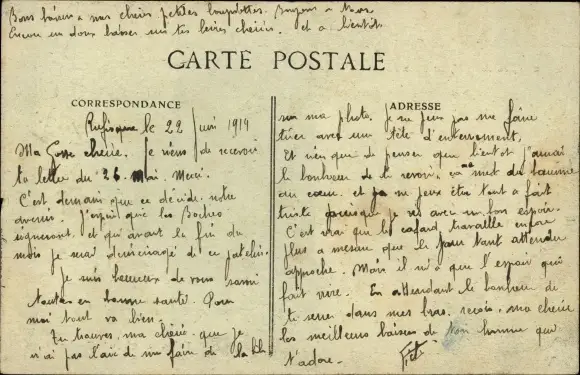 Bons baisers a mes chères petites loupiottes. Bonjour a tous
Encore un doux baiser sur tes lèvres chéries. et a bientôt
CARTE POSTALE
CORRESPONDANCE
ADRESSE
Rufisque le 22 Juin 1919
Ma Gosse chérie. Je viens de recevoir
ta lettre du 26 Mai. Merci.
C'est demain que se décide notre
avenir. J'espère que les Boches
signeront. et qu'avant la fin du
mois je serai déménagé de ce patelin.
Je suis heureux de vous savoir
toutes en bonne santé. Pour
moi tout va bien.
Tu trouves, ma chérie, que je
n'ai pas l'air de me faire de la bile
sur ma photo. je ne peux pas me faire
tirer avec un tête d'enterrement,
Et rien que de penser que bientôt j'aurai
le bonheur de te revoir, ça me met du baume
au coeur. et je ne peux être tout a fait
triste puisque je vis avec un bon espoir.
C'est vrai que le cafard travaille encore
plus a mesure que le jour tant attendu
approche. Mais il n'y a que l'espoir qui
fait vivre. En attendant le bonheur de
te serrer dans mes bras. reçois, ma chérie
les meilleurs baisers de ton homme que
t'adore.